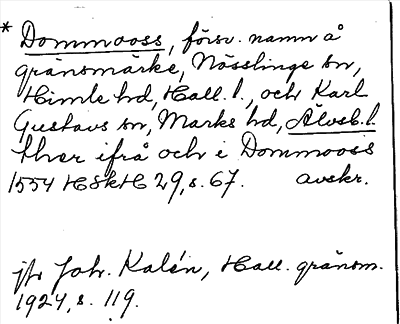 * Dommooss, försv. namn å
gränsmärke, Nösslinge sn,
Himle hd, Hall. l., och Karl
Gustavs sn, Marks hd, Älvsb. l.
ther ifrå och i Dommooss
1554 HSkH 29, s. 67. avskr.
jfr Joh. Kalén, Hall. gränsm.
1924, s. 119.